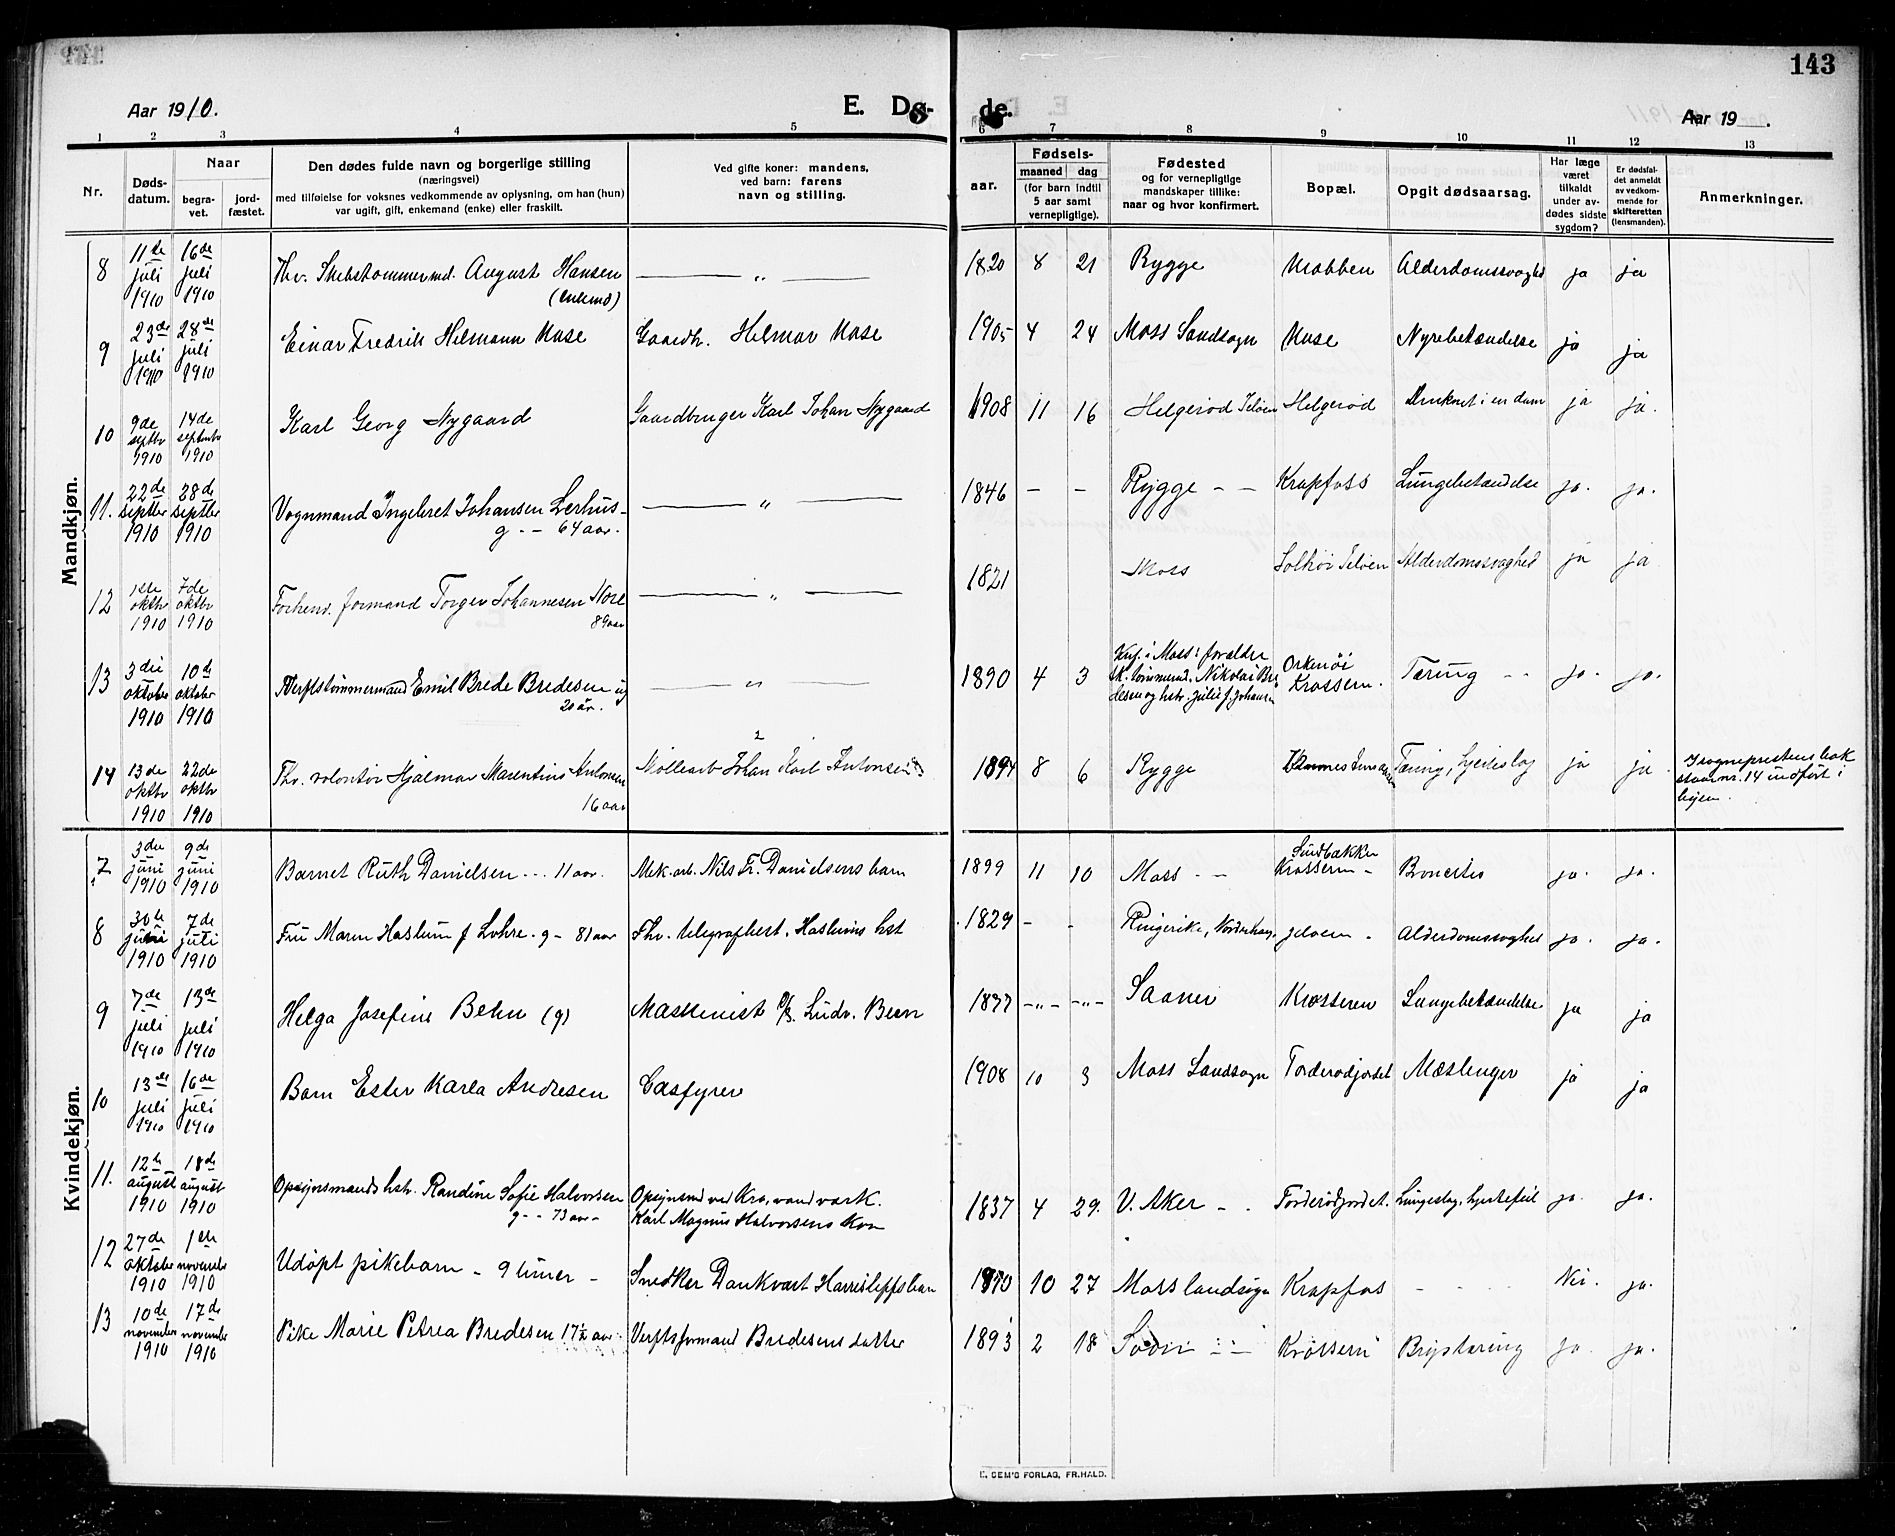 143
Aar 1910.
E. Dø-
de.
Aar 19 .
1 2 3 4 5 6 7 8 9 10 11 12 13
Nr.
Døds-
datum.
Naar
begra-
vet.
jord-
fæstet.
Den dødes fulde navn og borgerlige stilling
(næringsvei)
med tilføielse for voksnes vedkommende av oplysning, om han (hun)
var ugift, gift, enkemand (enke) eller fraskilt.
Ved gifte koner: mandens,
ved barn: farens
navn og stilling.
aar.
Fødsels-
maaned dag
(for barn indtil
5 aar samt
vernepligtige).
Fødested
og for vernepligtige
mandskaper tillike:
naar og hvor konfirmert.
Bopæl.
Opgit dødsaarsag.
Har læge
været
tilkaldt
under av-
dødes sidste
sygdom?
Er dødsfal-
det anmeldt
av vedkom-
mende for
skifteretten
(lensmanden).
Anmerkninger.
Mandkjøn.
8 11te juli 1910 16de juli 1910 Fhv. Skibstømmermd. August Hansen (enkemd) — " — 1820 8 21 Rygge Mobben Alderdomssvaghed ja ja
9 23de juli 1910 28de juli 1910 Einar Fredrik Hilmann Mose Gaardbr. Hilmar Mose 1905 4 24 Moss Landsogn Mose Nyrebetændelse ja ja
10 9de septbr 1910 14de septembr 1910 Karl Georg Nygaard Gaardbruger Karl Johan Nygaard 1908 11 16 Helgerød Jeløen Helgerød Druknet i en dam ja ja.
11. 22de septbr 1910 28de septbr 1910 Vognmand Ingebret Johansen Lerhus - g -- 64 aar. — " — 1846 - - Rygge - - Krapfoss Lungebetændelse ja. ja.
12 1ste oktbr 1910 7de oktbr 1910 Forhenv. formand Torger Johannesen 89 aar — " — 1821 Moss Solhøi Jeløen Alderdomssvaghed ja ja
13 3die oktober 1910 10de oktober 1910 Verftstømmermand Emil Brede Bredesen ug 20 år. — " — 1890 4 3 Knf. i Moss: forældre sk.tømmmd. Nikolai Bredesen og hstr. Julie f. Johansen Orkenöi Krossern. Tæring - - ja. ja.
14 13de oktbr 1910 22de oktbr 1910 Fhv. volontør Hjalmar Marentius Antonsen 16 aar Møllearb Johan Karl Antonsen 1894 8 6 Rygge Tæring, hjerteslag ja ja. I sogneprestens bok staar nr. 14 indført i byen.
Kvindekjøn.
7 3die juni 1910 9de juni 1910 Barnet Ruth Danielsen ... 11 aar. Mek.arb. Nils Fr. Danielsens barn 1899 11 10 Moss - - Sundbakken Krossern - Bronchitis ja. ja.
8 30te juni 1910 7de juli 1910 Fru Maren Haslum f Lohre. g - 81 aar Fhv. telegrafbest. Haslums hst 1829 - - Ringerike, Norderhov, Jeløen - Alderdomssvaghet ja. ja.
9 7de juli 1910 13de juli 1910 Helga Josefine Behn (g) Maskinist Ludv. Been 1877 -"- -"- Saaner Krosseren Lungebetændelse ja ja
10 13de juli 1910 16de juli 1910 Barn Ester Karla Andresen Casfyrer 1908 10 3 Moss Landsogn Torderødjordet Mæslinger ja ja
11. 12te august 1910 18de august 1910 Opsynsmands hstr. Randine Sofie Halvorsen g -- 73 aar - Opsynsmd ved Kra, vandværk. Karl Magnus Halvorsens Kone 1837 4 29. V. Aker - . Torderødjordet. Lungeslag, hjertefeil ja. ja.
12 27de oktober 1910 1ste november 1910 Udøpt pikebarn - 9 timer - Snedker Dankvart Harrisleppsbarn 1910 10 27 Moss landsogn Krapfos - Nei. ja.
13 10de november 1910 17de november 1910 Pike Marie Petrea Bredesen 17½ aar Verftsformand Bredesens datter 1893 2 18 Krossern Brysttæring ja. ja.
E. SEM'S FORLAG, FR.HALD.